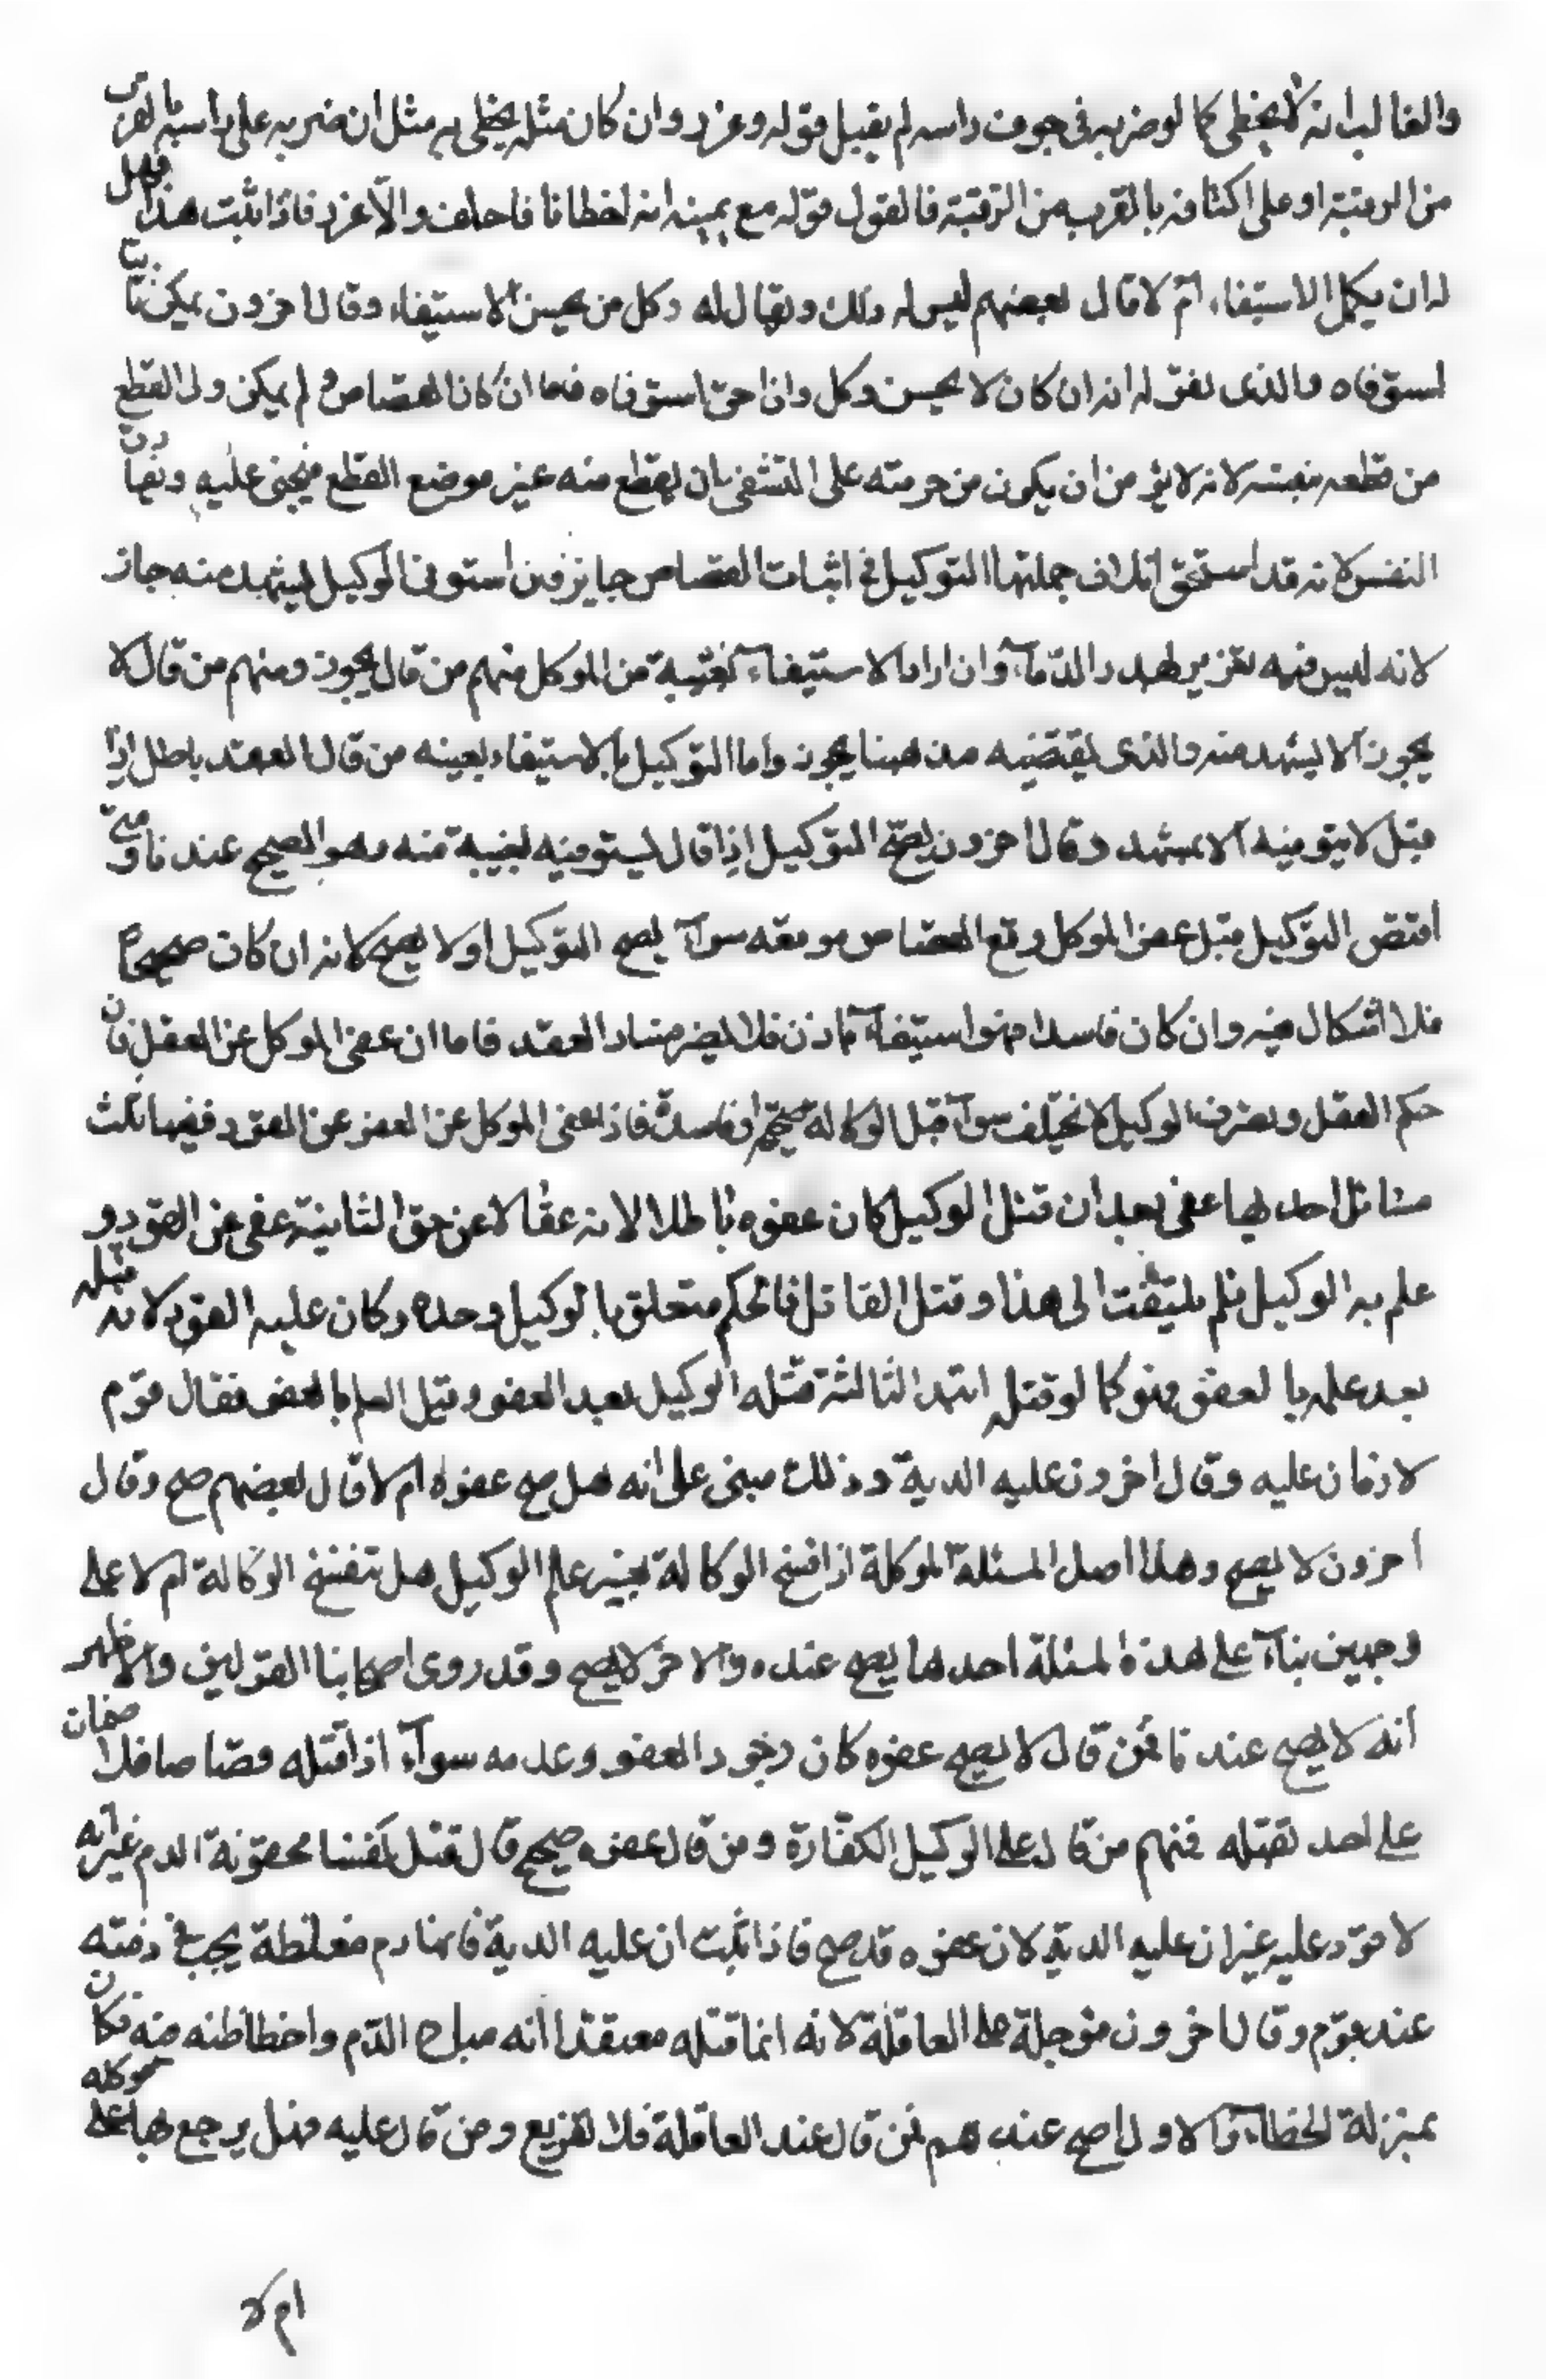 والغالب انه لا يخطى كما لو ضربه فى جوف راسه لم يقبل قوله وعزر وان كان مثله يخطى به مثل ان ضربه على راسه مما يقرب
من الرقبة او على اكتافه بالقرب من الرقبة فالقول قوله مع يمينه انه اخطا فا فاحلف والّا عزر فاذا ثبت هذا فهل
له ان يكمل الاستيفاء ام لا قال بعضهم ليس له ذلك ويقال له وكل من يحسن الاستيفاء وقال اخرون يمكن ثانيا
لستوفاه والذى نقوله انه ان كان لا يحسن وكل وان احق استوفاه فاما ان كان القصاص لم يمكن ولى القطع
من قطعه بنفسه لانه لا يؤمن ان يكون من حرمته على التشفى بان يقطع منه غير موضع القطع فيجنى عليه ويفارق
النفس لانه قد استحق اتلاف جملتها التوكيل فى اثبات القصاص جايز فان استوفى الوكيل ليشهد منه جاز
لانه ليس فيه تعزير بهدر الدّماء وان اراد الاستيفاء بغيبة من الموكل منهم من قال يجوز ومنهم من قال لا
يجوز الا يشهد منه والذى يقتضيه مذهبنا يجوز واما التوكيل بالاستيفاء بعينه من قال العقد باطل اذا
قيل لا يتوفيه الا بمشهد وقال اخرون يصحّ التوكيل اذا قال ليستوفيه بغيبة منه وهو الصحيح عندنا ومتى
اقتض التوكيل قبل عفو الموكل وقع القصاص موقعه سوآء يصح التوكيل او لا يصح لانه ان كان صحيحا
فلا اشكال فيه وان كان فاسدا فهو استيفآء باذن فلا يضر فساد العقد فاما ان عفى الموكل عن العقل فان
حكم العقل وتصرف الوكيل لا يختلف سوآء قبل الوكالة صحيحة او فاسدة فاذا عفى الموكل عن العفو عن القود ففيها ثلث
مسائل احديها عفى بعد ان قتل الوكيل كان عفوه باطلا لانه عفا لا عن حق الثانية عفى عن القود و
علم به الوكيل فلم يلتفت الى هذا وقتل القاتل فالحكم متعلق بالوكيل وحده وكان عليه القود لانه قتله
بعد علمه بالعفو فهو كما لو قتله ابتدا الثالثة قتله الوكيل بعد العفو وقبل العلم بالعفو فقال قوم
لا ضمان عليه وقال اخرون عليه الدية وذلك مبنى على انه هل صح عفوه ام لا قال بعضهم صح وقال
اخرون لا يصح وهذا اصل المسئلة الموكلة اذا فسخ الوكالة بغير علم الوكيل هل تنفسخ الوكالة ام لا على
وجهين بنآء على هذه المسئلة احدها يصح عنده والاخر لا يصح وقد روى اصحابنا القولين والاظهر
انه لا يصح عندنا فمن قال لا يصح عفوه كان وجود العفو وعدمه سوآء اذا قتله قصّاصا فلا ضمان
على احد بقتله فمنهم من قال على الوكيل الكفّارة ومن قال عفوه صحيح قال قتل نفسا محقونة الدم غير انه
لا قود عليه غير ان عليه الدية لان عفوه قد صح فاذا ثبت ان عليه الدية فانها دم مغلظة يجب فى ذمته
عند قوم وقال اخرون مؤجلة على العاقلة لانه انما قتله معتقدا انه مباح الدّم واخطا ظنه منه فكان
بمنزلة الخطاء والاول اصح عندهم فمن قال عند العاقلة فلا تفريع ومن قال عليه فهل يرجع بها على موكله
ام لا